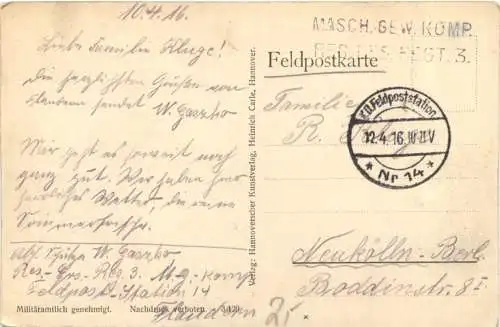 10.4.16.
MASCH. GEW. KOMP.
RES. REGT. 3.
Feldpostkarte
Liebe Familie Kluge!
Die herzlichsten Grüßen von
Flandern sendet W. Gaszko
Mir geht es soweit noch
ganz gut. Wir haben hier
herrliches Wetter, die reine
Sommerfrische.
Familie
R.
K.D. Feldpoststation
12.4.16. V
* Nr 14 *
Neukölln-Berl.
Boddinstr. 8
Abs. Schütze W. Gaszko
Res. Regt. 3. M.g. Komp
Feldpost-Statin 14
Flandern
25
Militäramtlich genehmigt. Nachdruck verboten.
Verlag: Hannoverscher Kunstverlag, Heinrich Carle, Hannover.